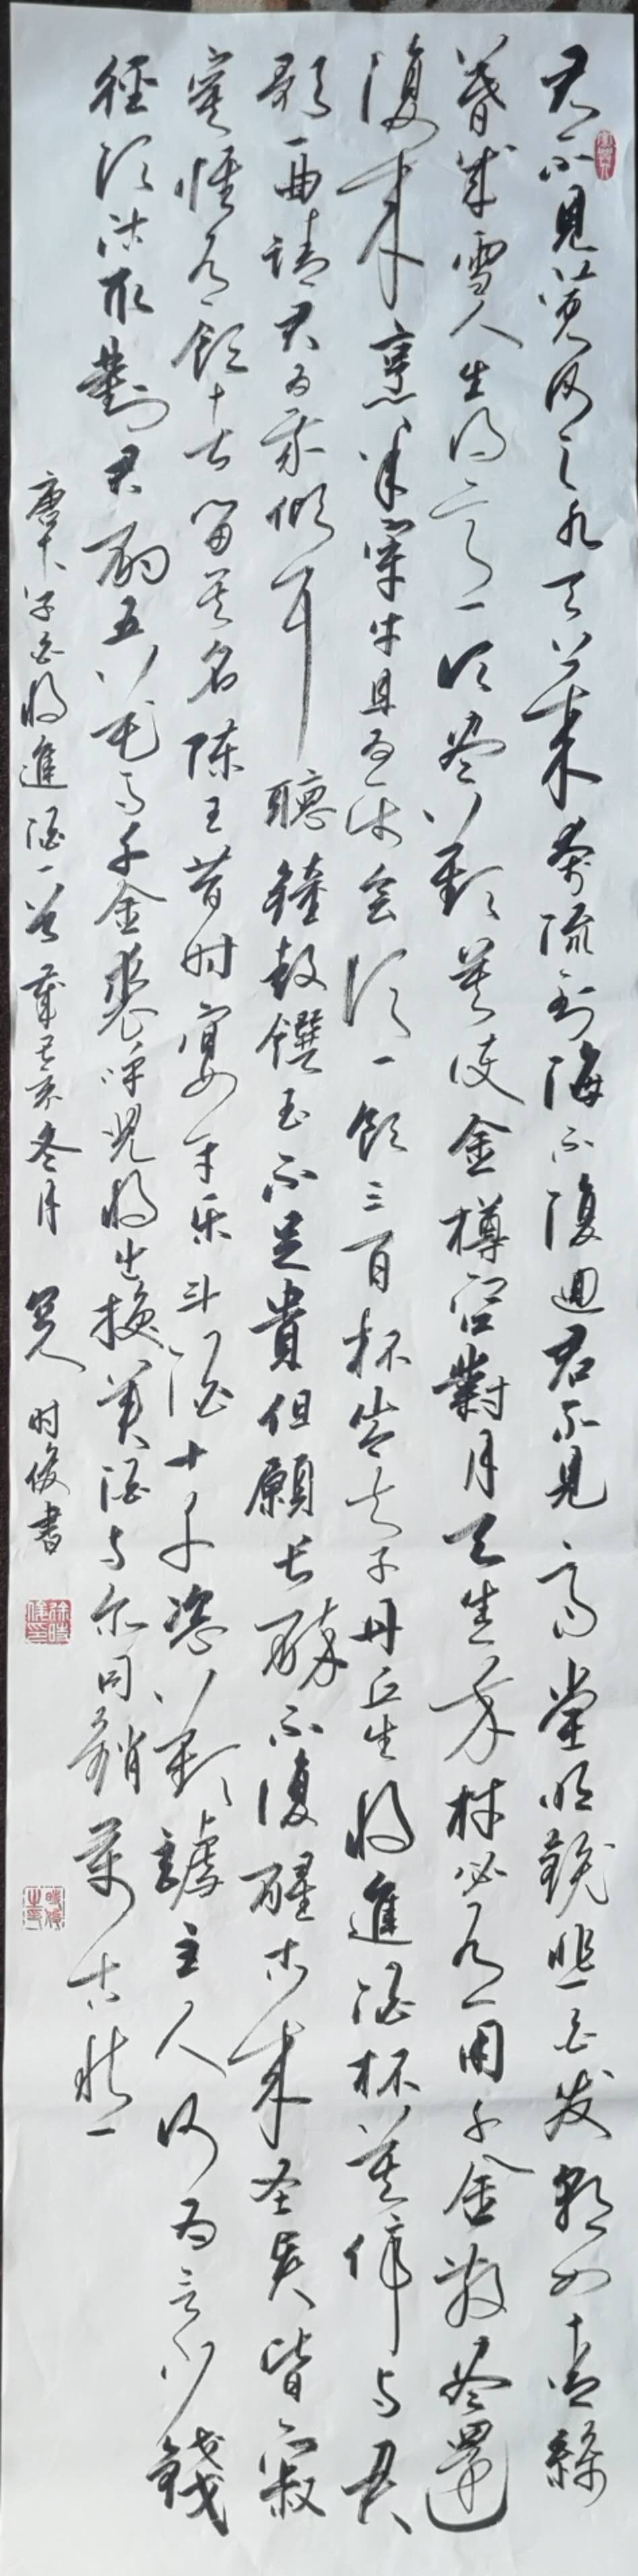 君不见黄河之水天上来奔流到海不復迴君不見高堂明鏡悲白发朝如青絲
暮成雪人生得意須盡歡莫使金樽空對月天生我材必有用千金散尽還
復来烹羊宰牛且為樂會須一飲三百杯岑夫子丹丘生將進酒杯莫停与君
歌一曲請君為我傾耳聽鐘鼓饌玉不足貴但願长醉不復醒古来圣贤皆寂
寞惟有飲者留其名陈王昔时宴平乐斗酒十千恣歡謔主人何为言少錢
徑須沽取對君酌五花马千金裘呼兒將出换美酒与尔同銷萬古愁
唐李白將進酒一首歲己亥冬月 时俊書